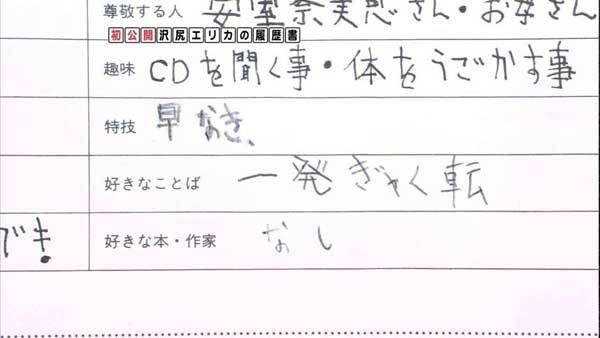 尊敬する人 安室奈美恵さん・お母さん
初公開沢尻エリカの履歴書
趣味 CDを聞く事・体をうごかす事
特技 早なき、
好きなことば 一発ぎゃく転
でき!
好きな本・作家 なし